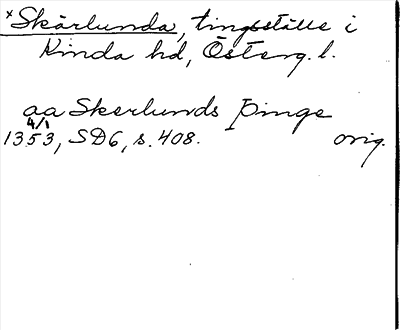 *Skärlunda, tingsställe i
Kinda hd, Österg. l.
aa Skerlunds þinge
4/1
1353, SD6, s. 408. orig.